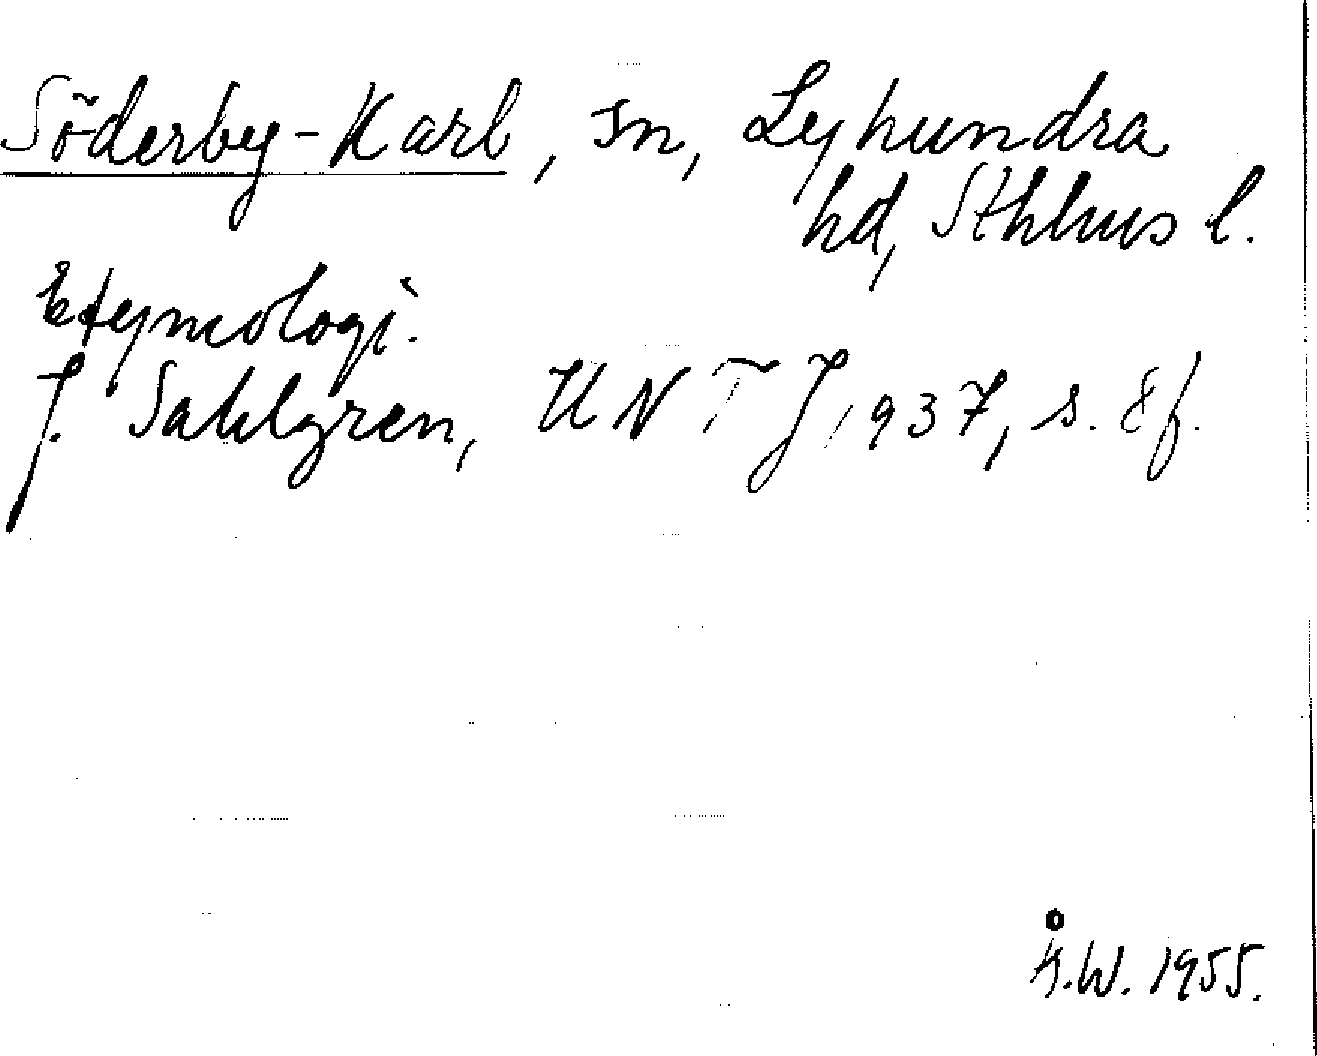 Söderby-Karl, sn, Lyhundra
hd, Sthlms l.
Etymologi.
J. Sahlgren, UNTJ 1937, s. 8f.
Å.W. 1955.